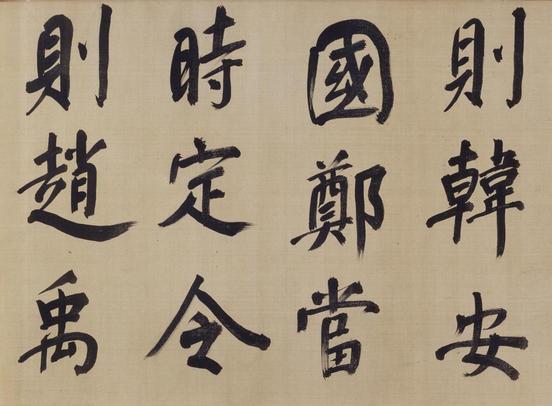 則韓安
國鄭當
時定令
則趙禹